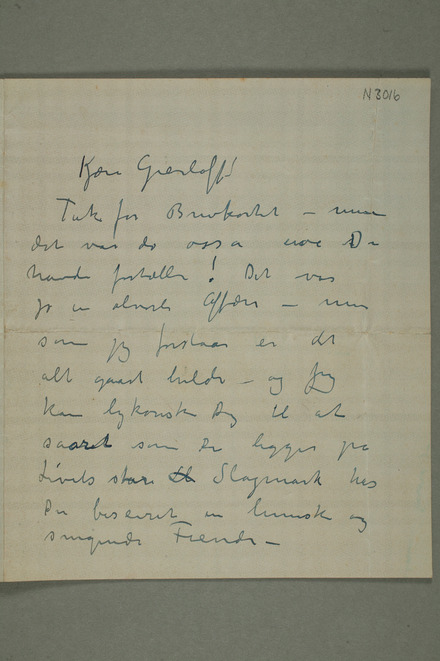 N 3016
Kjære Gierløff!
Tak for Brevkortet – men
det var da også noe Du
havde fortælle! Det var
jo en alvorli Affære – men
som jeg forstaar er det
alt gaaet bilde – og jeg
kan lykønske Dig til at
saaret som Du ligger paa
Livets store Slagmark har
Du beseiret en lumsk og
snigende Fiende –